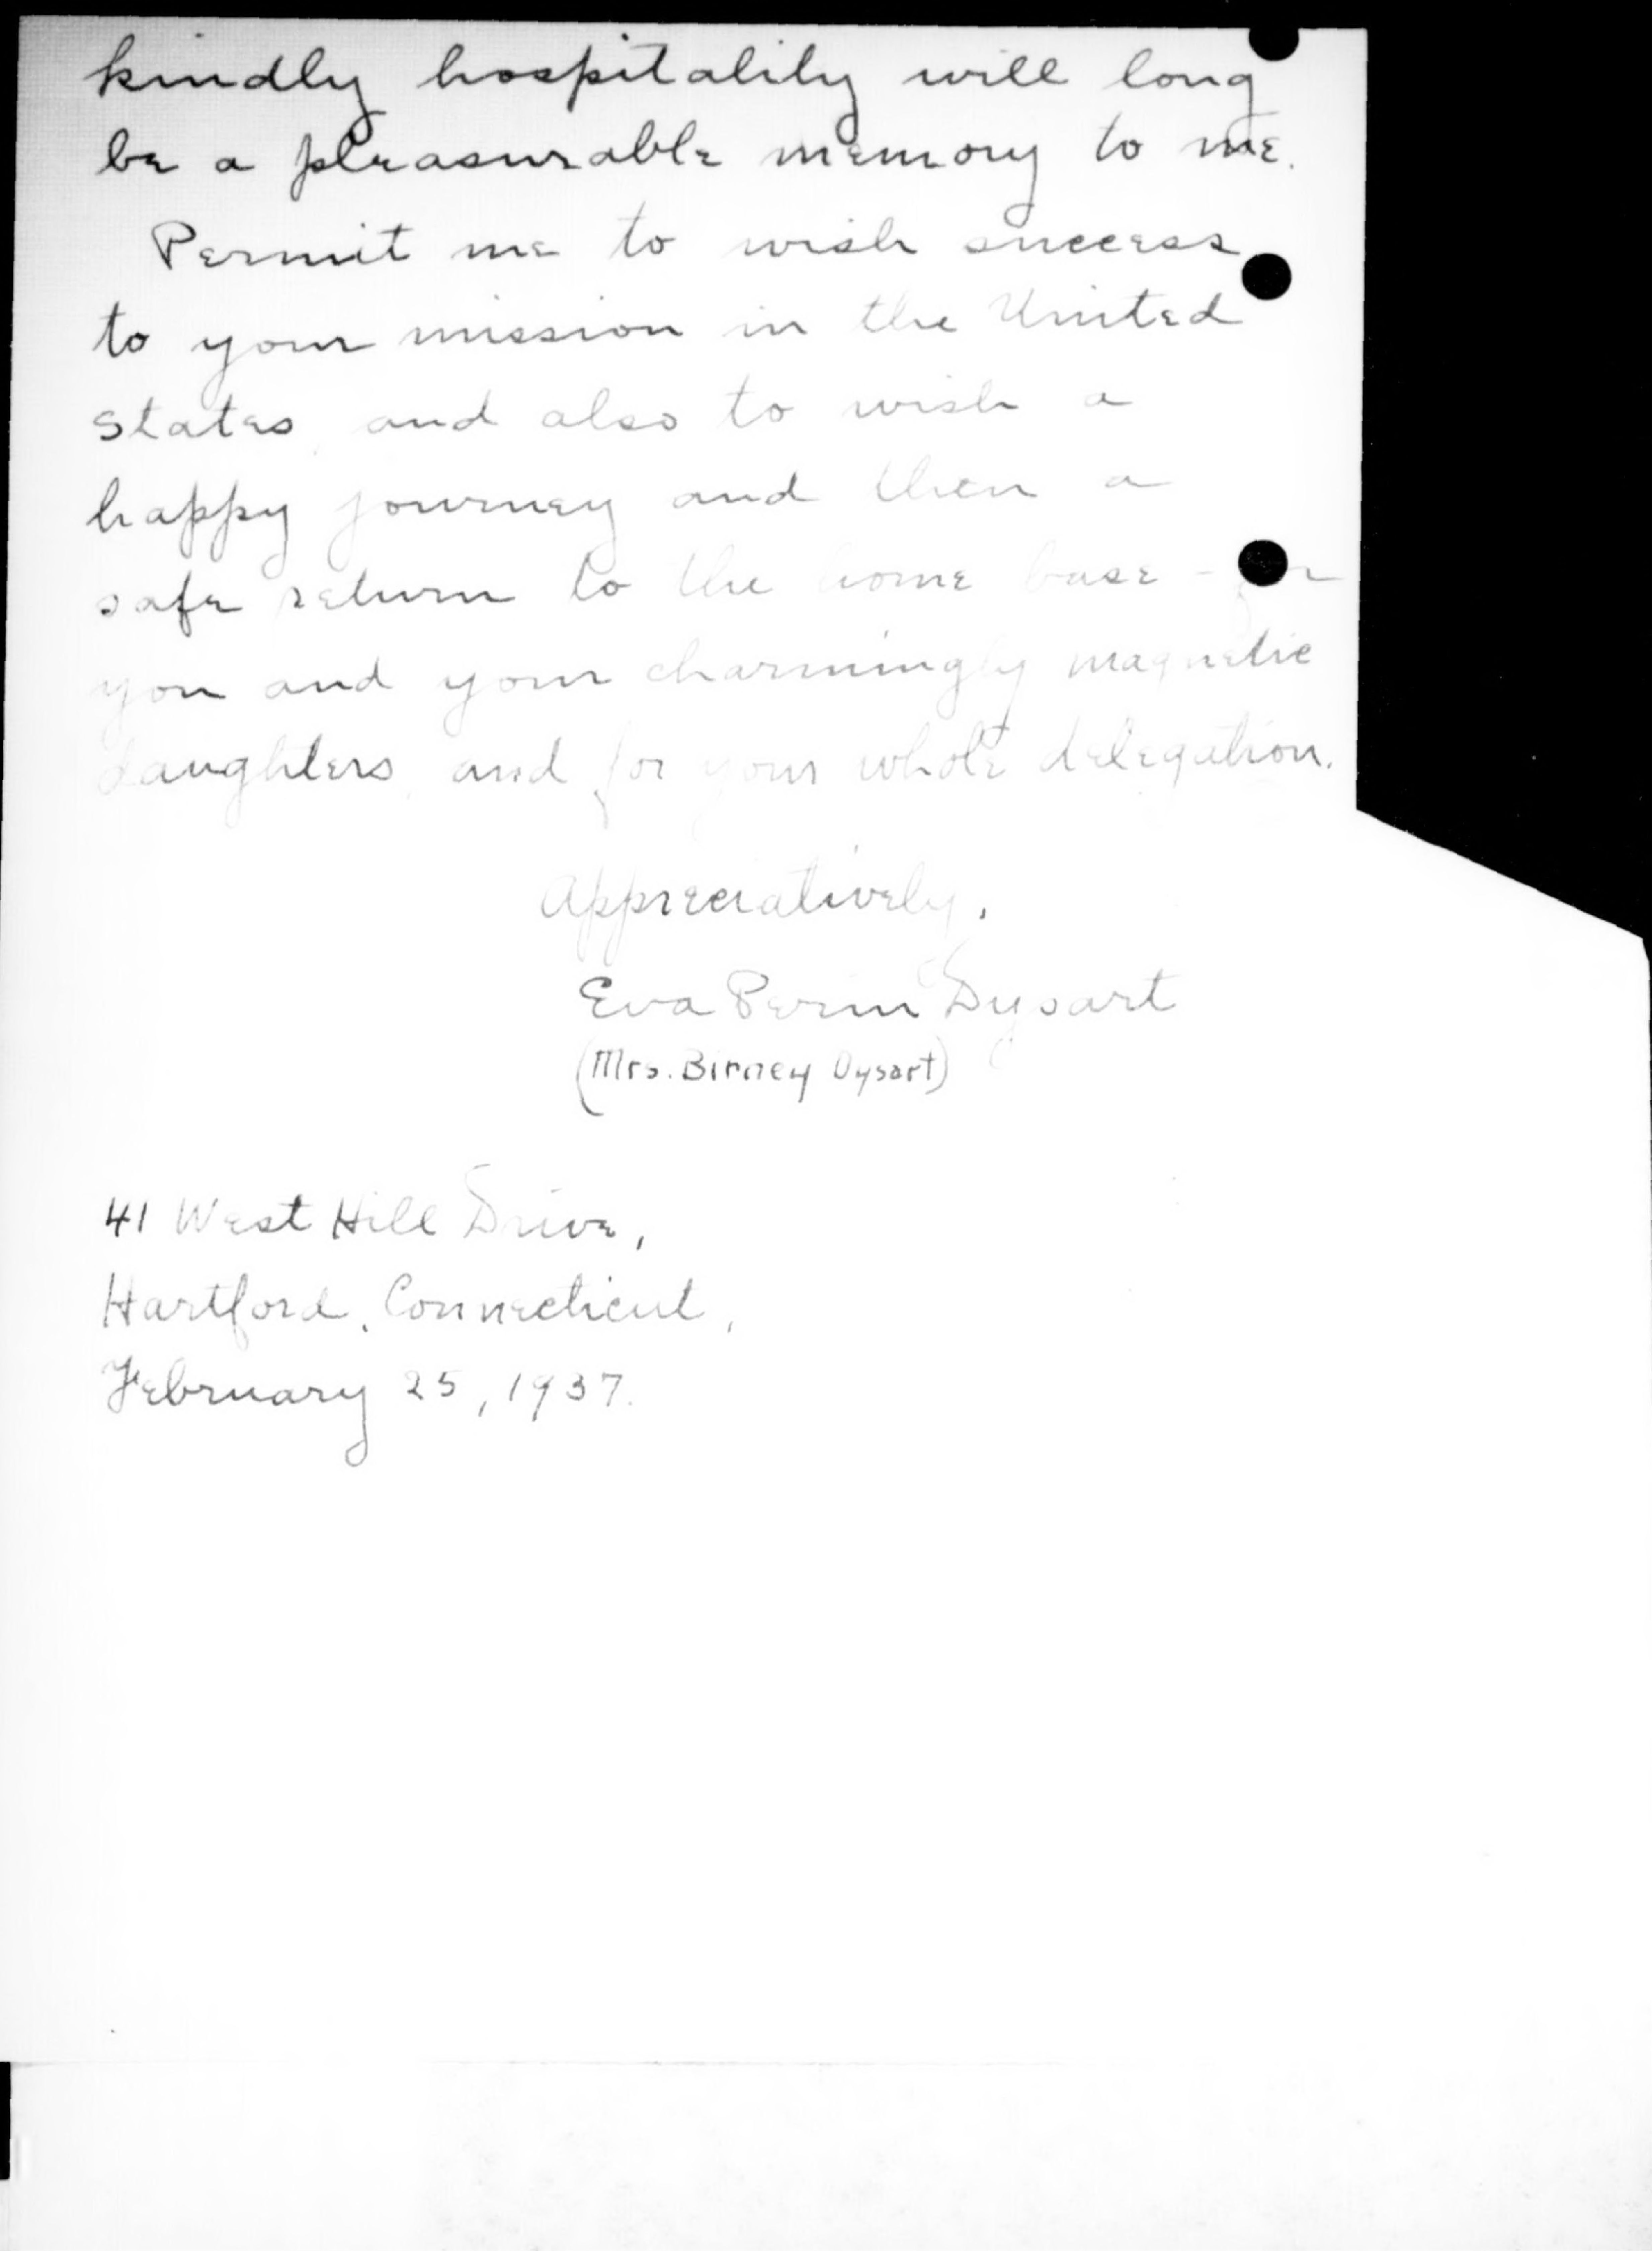 kindly hospitality will long
be a pleasurable memory to me.
Permit me to wish success
to your mission in the United
States, and also to wish a
happy journey and then a
safe return to the home base - for
you and your charmingly magnetic
daughters, and for your whole delegation.
Appreciatively,
Eva Perin Dysart
(Mrs. Birney Dysart)
41 West Hill Drive,
Hartford, Connecticut,
February 25, 1937.